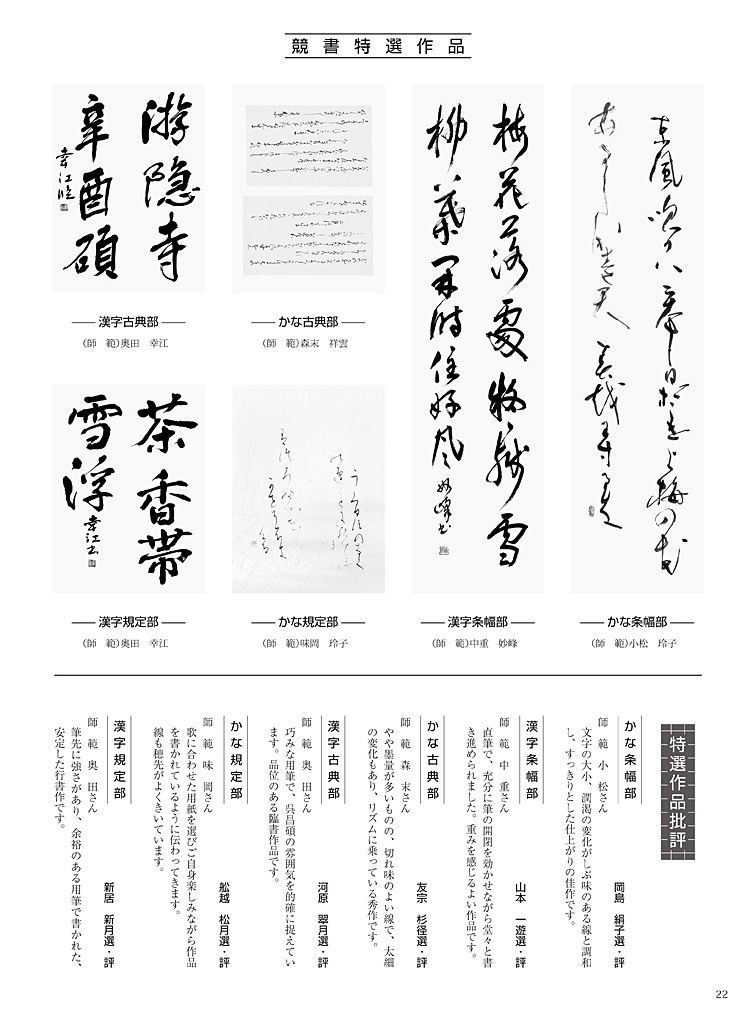 競書特選作品
游隐寺
辛酉碩
幸江臨
漢字古典部
（師　範）奥田　幸江
かな古典部
（師　範）森末　祥雲
茶香帯
雪浮
幸江書
漢字規定部
（師　範）奥田　幸江
かな規定部
（師　範）味岡　玲子
梅花落處
雪
柳葉開時任好風
妙峰書
漢字条幅部
（師　範）中重　妙峰
かな条幅部
（師　範）小松　玲子
特選作品批評
かな条幅部
岡島　絹子選・評
師　範　小　松さん
文字の大小、潤渇の変化がしぶ味のある線と調和
し、すっきりとした仕上がりの佳作です。
漢字条幅部
山本　一遊選・評
師　範　中　重さん
直筆で、充分に筆の開閉を効かせながら堂々と書
き進められました。重みを感じるよい作品です。
かな古典部
友宗　杉径選・評
師　範　森　末さん
やや墨量が多いものの、切れ味のよい線で、太細
の変化もあり、リズムに乗っている秀作です。
漢字古典部
河原　翠月選・評
師　範　奥　田さん
巧みな用筆で、呉昌碩の雰囲気を的確に捉えてい
ます。品位のある臨書作品です。
かな規定部
舩越　松月選・評
師　範　味　岡さん
歌に合わせた用紙を選びご自身楽しみながら作品
を書かれているように伝わってきます。
線も穂先がよくきいています。
漢字規定部
新居　新月選・評
師　範　奥　田さん
筆先に強さがあり、余裕のある用筆で書かれた、
安定した行書作です。
22